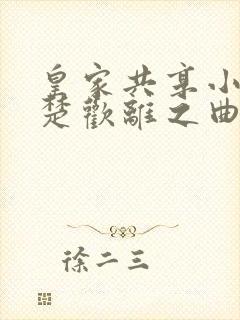 皇家共享小
楚歡離之曲
徐二三